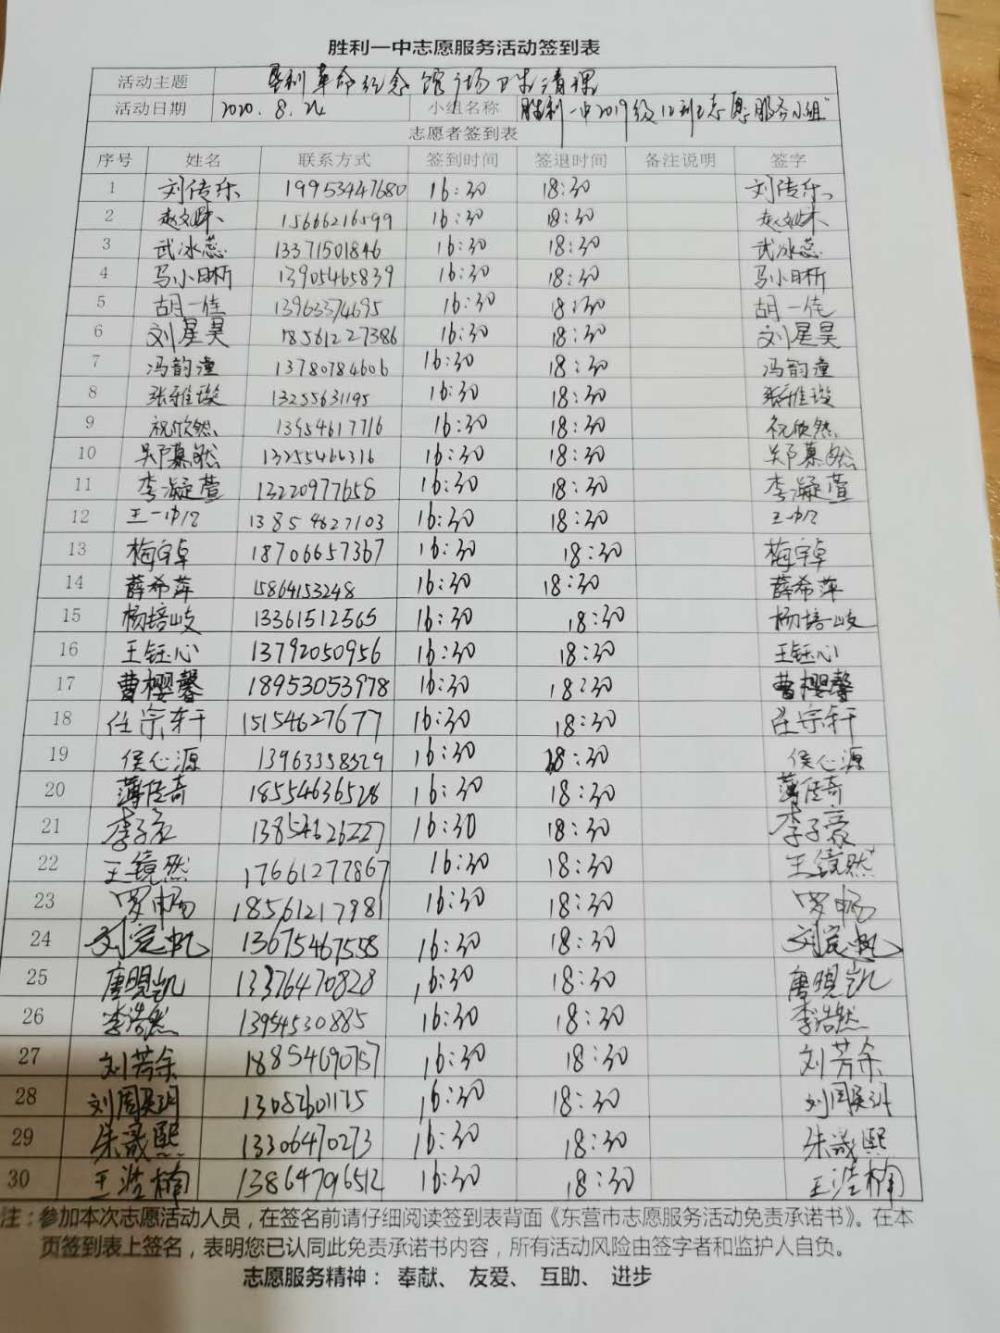 胜利一中志愿服务活动签到表
活动主题 垦利革命纪念馆广场卫生清理
活动日期 2020.8.24 小组名称 胜利一中2019级12班志愿服务小组
志愿者签到表
序号 姓名 联系方式 签到时间 签退时间 备注说明 签字
1 刘传乐 19953447680 16:30 18:30 刘传乐
2 15666216599 16:30 18:30
3 武冰蕊 13371501846 16:30 18:30 武冰蕊
4 马小晰 13905465839 16:30 18:30 马小晰
5 胡一佳 13963374695 16:30 18:30 胡一佳
6 刘星昊 18561227386 16:30 18:30 刘星昊
7 冯韵潼 13780784606 16:30 18:30 冯韵潼
8 张雅璇 13255631195 16:30 18:30 张雅璇
9 祝欣然 13954617716 16:30 18:30 祝欣然
10 郑慕然 13255466316 16:30 18:30 郑慕然
11 李凝萱 13220977658 16:30 18:30 李凝萱
12 王一帆 13854627103 16:30 18:30 王一帆
13 梅宇卓 18706657367 16:30 18:30 梅宇卓
14 薛希萍 15864153248 16:30 18:30 薛希萍
15 杨培岐 13361512565 16:30 18:30 杨培岐
16 王钰心 13792050956 16:30 18:30 王钰心
17 曹樱馨 18953053978 16:30 18:30 曹樱馨
18 任宗轩 15154627677 16:30 18:30 任宗轩
19 侯心源 13963358529 16:30 18:30 侯心源
20 薄传奇 18554636528 16:30 18:30 薄传奇
21 李子豪 13854626227 16:30 18:30 李子豪
22 王镜然 17661277867 16:30 18:30 王镜然
23 罗畅 18561217981 16:30 18:30 罗畅
24 刘定帆 13675467558 16:30 18:30 刘定帆
25 唐晛凯 13376470828 16:30 18:30 唐晛凯
26 李浩然 13954530885 16:30 18:30 李浩然
27 刘芳余 18854690757 16:30 18:30 刘芳余
28 13082601175 16:30 18:30
29 朱晟熙 13306470273 16:30 18:30 朱晟熙
30 王浩楠 13864796512 16:30 18:30 王浩楠
注：参加本次志愿活动人员，在签名前请仔细阅读签到表背面《东营市志愿服务活动免责承诺书》。在本
页签到表上签名，表明您已认同此免责承诺书内容，所有活动风险由签字者和监护人自负。
志愿服务精神： 奉献、 友爱、 互助、 进步